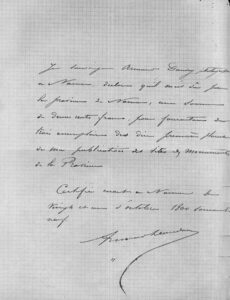 Je soussigné Armand Dandoy
à Namur, déclare qu'il m'est dû par
la province de Namur, une somme
de deux cents francs, pour fourniture de
trois exemplaires des dix premières
de ma publication des Sites & monuments
de la Province
Certifié exact à Namur le
Vingt et un d'octobre 18 soixante
neuf